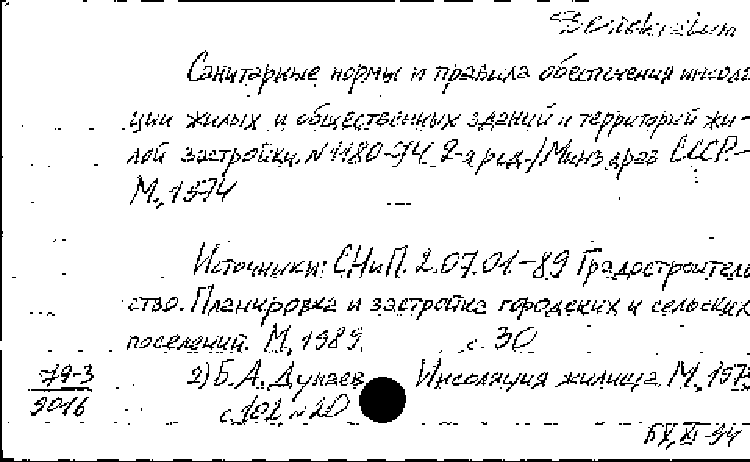 Санитарные нормы и правила обеспечения инсоля
ции жилых и общественных зданий и территорий жи-
лой застройки. N 1180-74. 2-я ред./Минздрав СССР.-
М., 1974
Источники: СНиП. 2.07.01.-89 Градостроитель
ство. Планировка и застройка городских и сельских
поселений. М, 1989. с. 30
79-3
2) Б.А. Дунаев Инсоляция жилища, М, 197
9016
с.102, н20